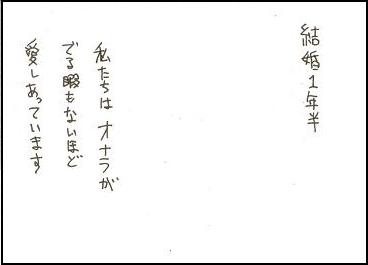 結婚1年半
私たちは オナラが
でる暇もないほど
愛しあっています